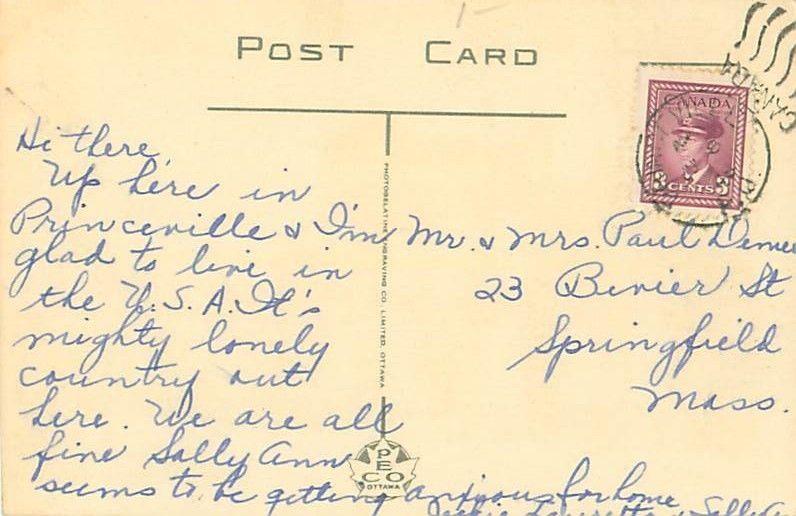 1-
POST CARD
CANADA
CANADA
3 CENTS 3
Hi there,
Up here in
Princeville & I'm
glad to live in
the U.S.A. It's
mighty lonely
country out
here. We are all
fine Sally Ann
seems to be getting anxious for home
Laurette & Sally
PHOTOGELATINE ENGRAVING CO. LIMITED, OTTAWA
PECO
OTTAWA
Mr. & Mrs. Paul
23 Bevier St
Springfield
Mass.